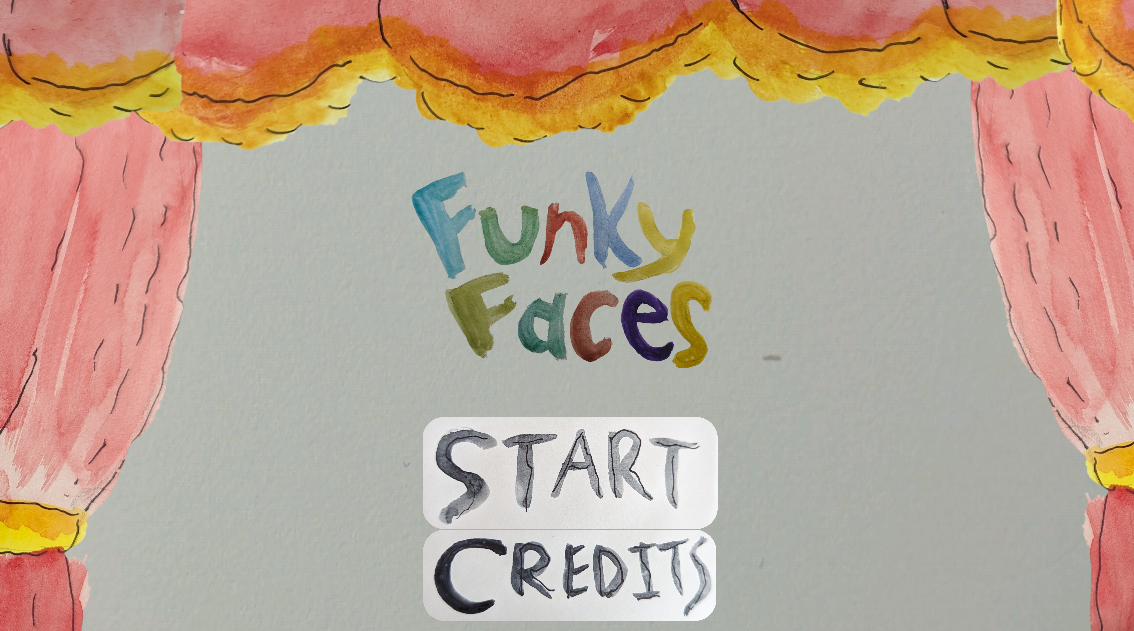 Funky
Faces
START
CREDITS